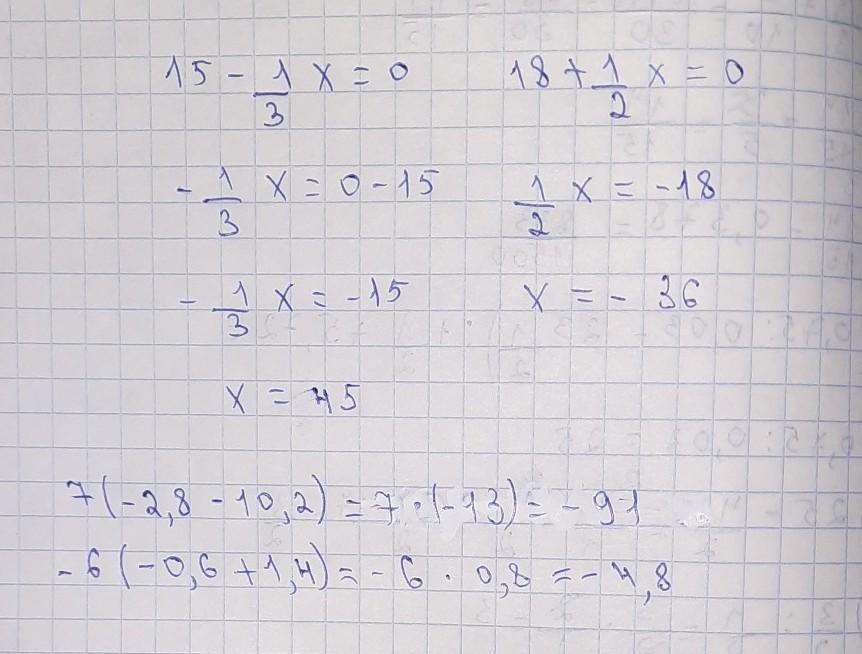 15 - 1/3 x = 0
- 1/3 x = 0 - 15
- 1/3 x = -15
x = 45
18 + 1/2 x = 0
1/2 x = -18
x = - 36
7(-2,8 - 10,2) = 7 · (-13) = - 91
- 6 (-0,6 + 1,4) = - 6 · 0,8 = - 4,8